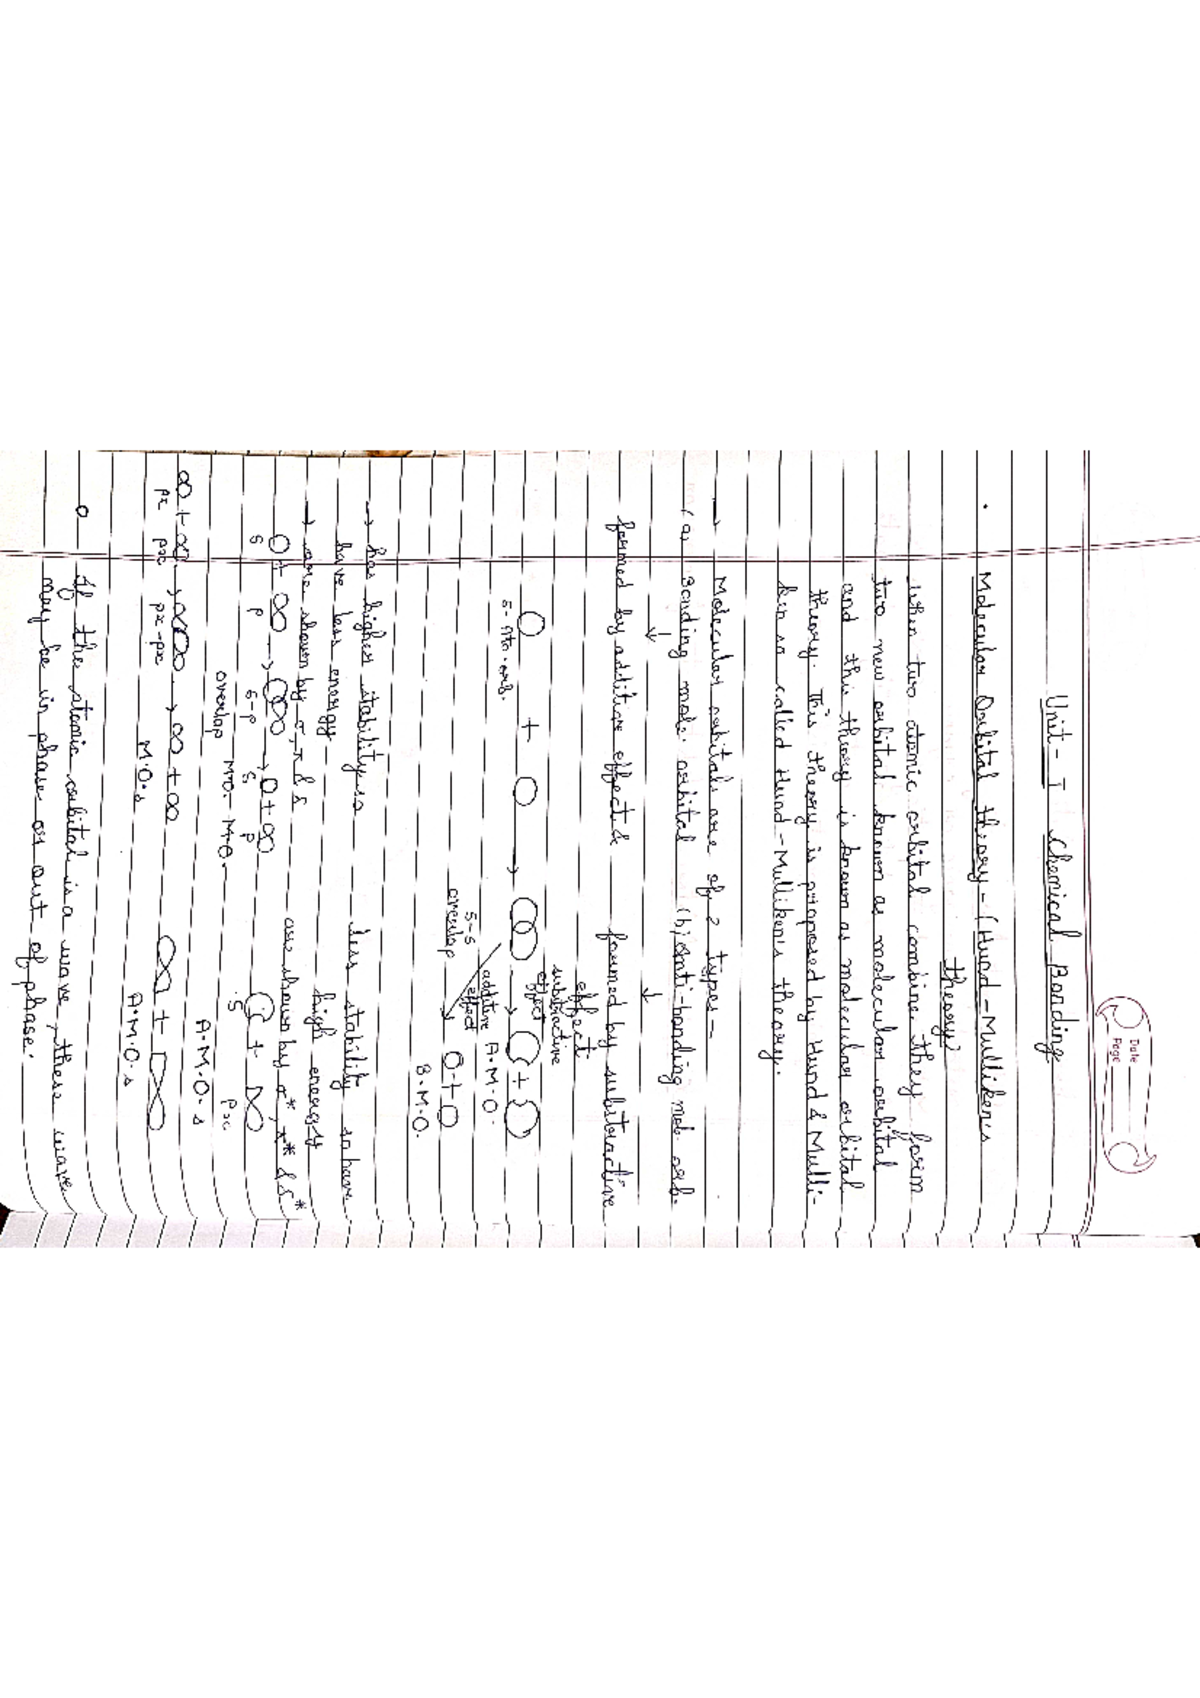 Date
Page
Unit - I Chemical Bonding
Molecular Orbital theory - (Hund - Mulliken's
theory)
when two atomic orbital combine they form
two new orbital known as molecular orbital
and this theory is known as molecular orbital
theory. This theory is proposed by Hund & Mulli-
ken so called Hund - Mulliken's theory.
→ Molecular orbitals are of 2 types -
(a) Bonding mole. orbital (b) Anti-bonding mol. orb.
↓ ↓
formed by additive effect & formed by subtractive
effect
subtractive
effect
+ → → +
s-Ato. orb.
additive A.M.O.
effect
s-s
overlap
+
B.M.O.
→ has higher stability so less stability so have
have less energy high energy
→ are shown by σ, π & δ are shown by σ*, π* & δ*
+ → → + +
s p s-p s p s px
overlap M.O. M.O.
A.M.O.s
+ → → + +
px px px-px
M.O.s A.M.O.s
o If the atomic orbital is a wave, these wave
may be in phase or out of phase.